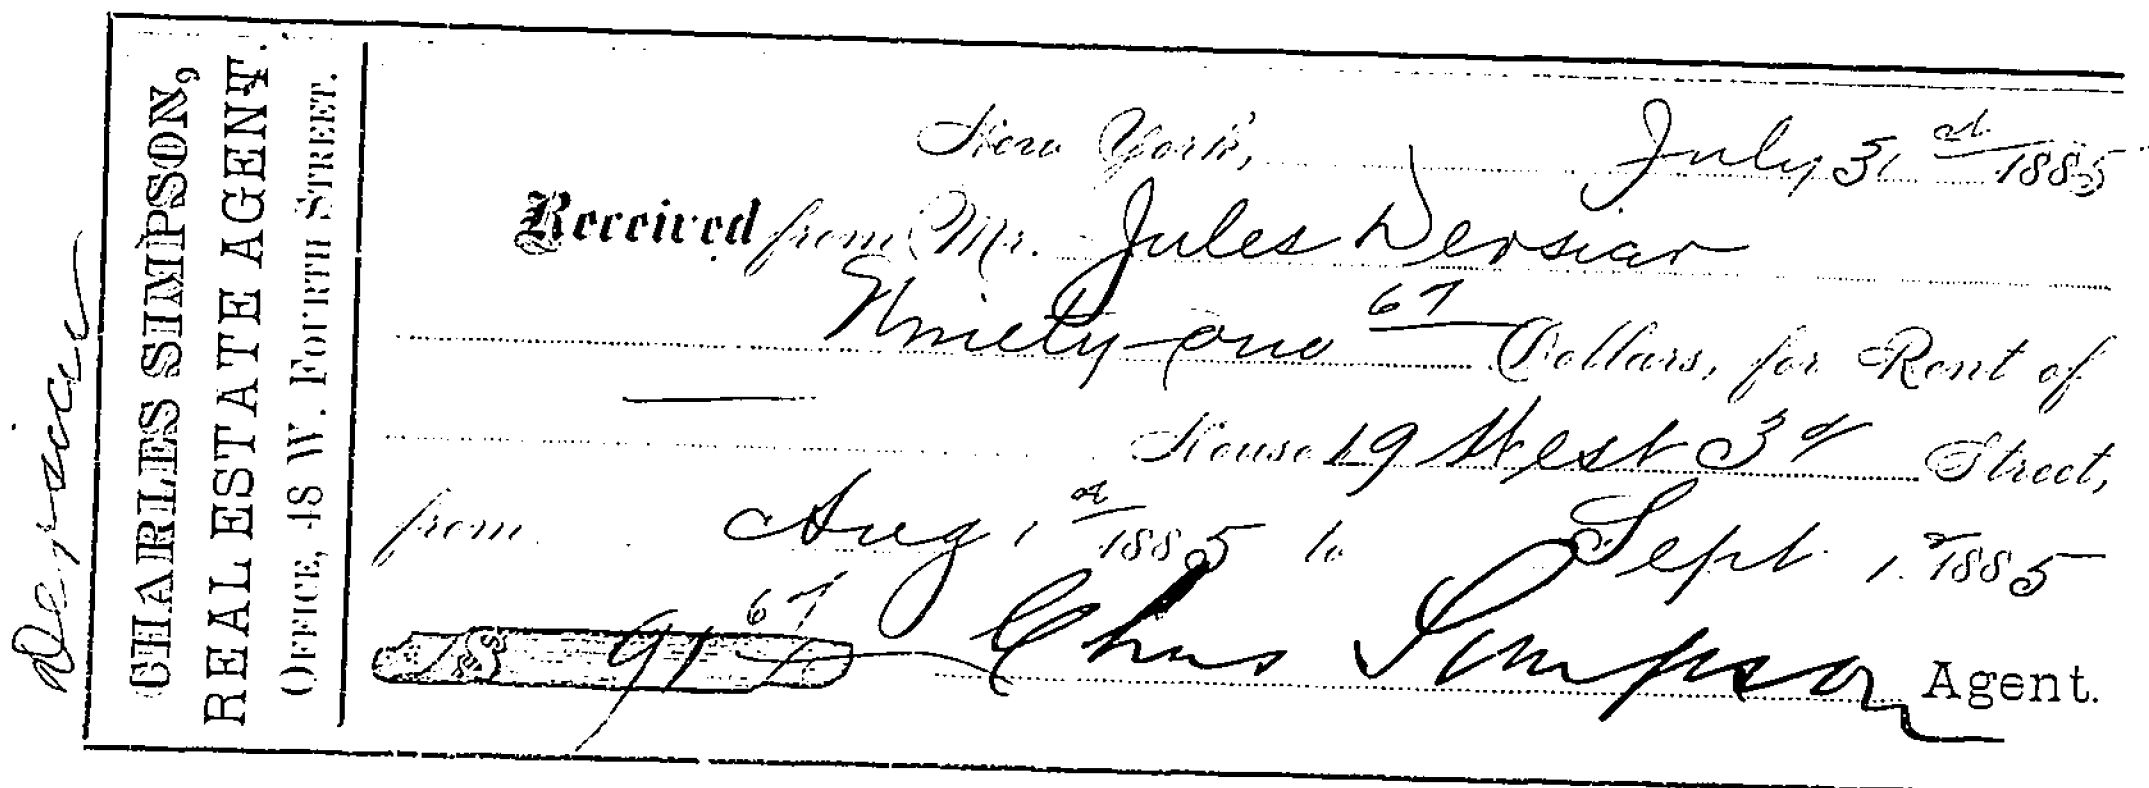 CHARLES SIMPSON,
REAL ESTATE AGENT.
OFFICE, 48 W. FOURTH STREET.
New York, July 31st 1885
Received from Mr. Jules
Ninety one 67 Dollars, for Rent of
House 19 West 3d Street,
from Aug 1st 1885 to Sept. 1st 1885
$ 91 67 Chas Simpson Agent.